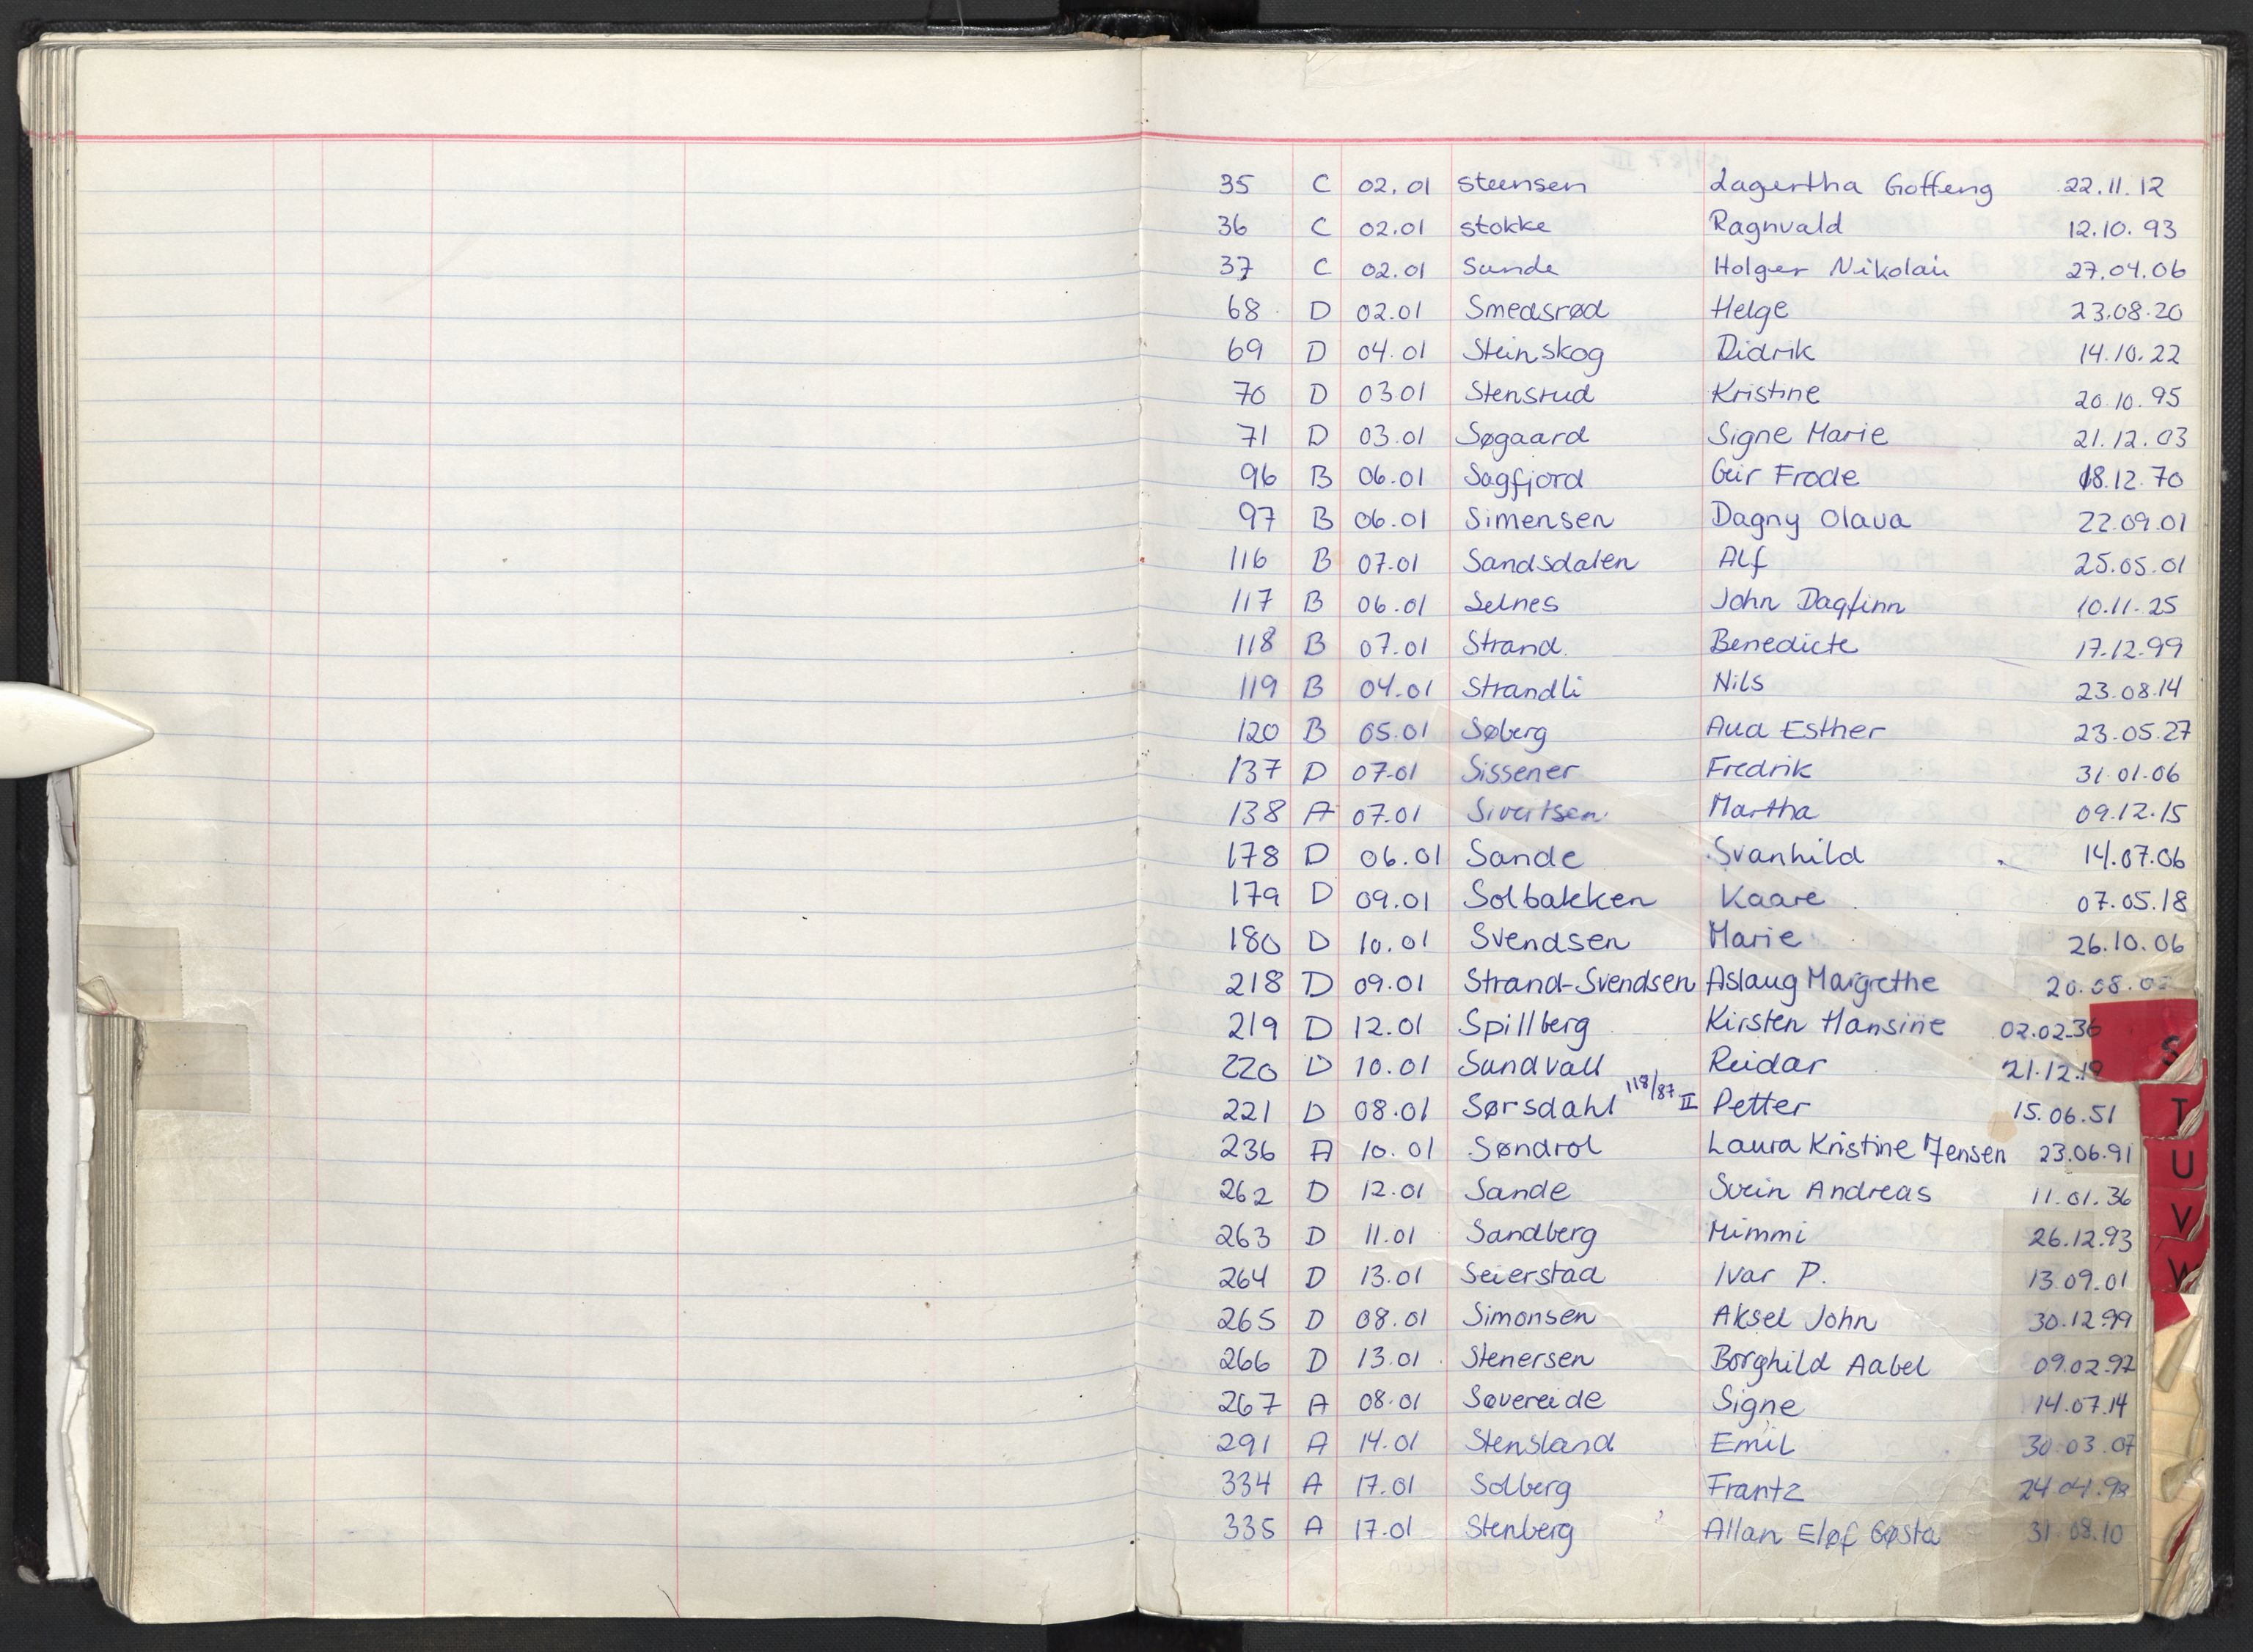 35 C 02.01 Steensen Lagertha Goffeng 22.11.12
36 C 02.01 Stokke Ragnvald 12.10.93
37 C 02.01 Sunde Holger Nikolai 27.04.06
68 D 02.01 Smedsrød Helge 23.08.20
69 D 04.01 Steinskog Didrik 14.10.22
70 D 03.01 Stensrud Kristine 20.10.95
71 D 03.01 Søgaard Signe Marie 21.12.03
96 B 06.01 Sagfjord Geir Frode 18.12.70
97 B 06.01 Simensen Dagny Olava 22.09.01
116 B 07.01 Sandsdalen Alf 25.05.01
117 B 06.01 Selnes John Dagfinn 10.11.25
118 B 07.01 Strand Benedicte 17.12.99
119 B 04.01 Strandli Nils 23.08.14
120 B 05.01 Søberg Aud Esther 23.05.27
137 D 07.01 Sissener Fredrik 31.01.06
138 A 07.01 Sivertsen Martha 09.12.15
178 D 06.01 Sande Svanhild 14.07.06
179 D 09.01 Solbakken Kaare 07.05.18
180 D 10.01 Svendsen Marie 26.10.06
218 D 09.01 Strand-Svendsen Aslaug Margrethe
219 D 12.01 Spillberg Kirsten Hansine 02.02.36
220 D 10.01 Sundvall Reidar
221 D 08.01 Sørsdahl 118/87 II Petter 15.06.51
236 A 10.01 Søndrol Laura Kristine Jensen 23.06.91
262 D 12.01 Sande Svein Andreas 11.01.36
263 D 11.01 Sandberg Mimmi 26.12.93
264 D 13.01 Seierstad Ivar P. 13.09.01
265 D 08.01 Simonsen Aksel John 30.12.99
266 D 13.01 Stenersen Borghild Aabel 09.02.97
267 A 08.01 Søvereide Signe 14.07.14
291 A 14.01 Stensland Emil 30.03.07
334 A 17.01 Solberg Frantz
335 A 17.01 Stenberg Allan Eløf Gøsta 31.08.10
S
T
U
V
W